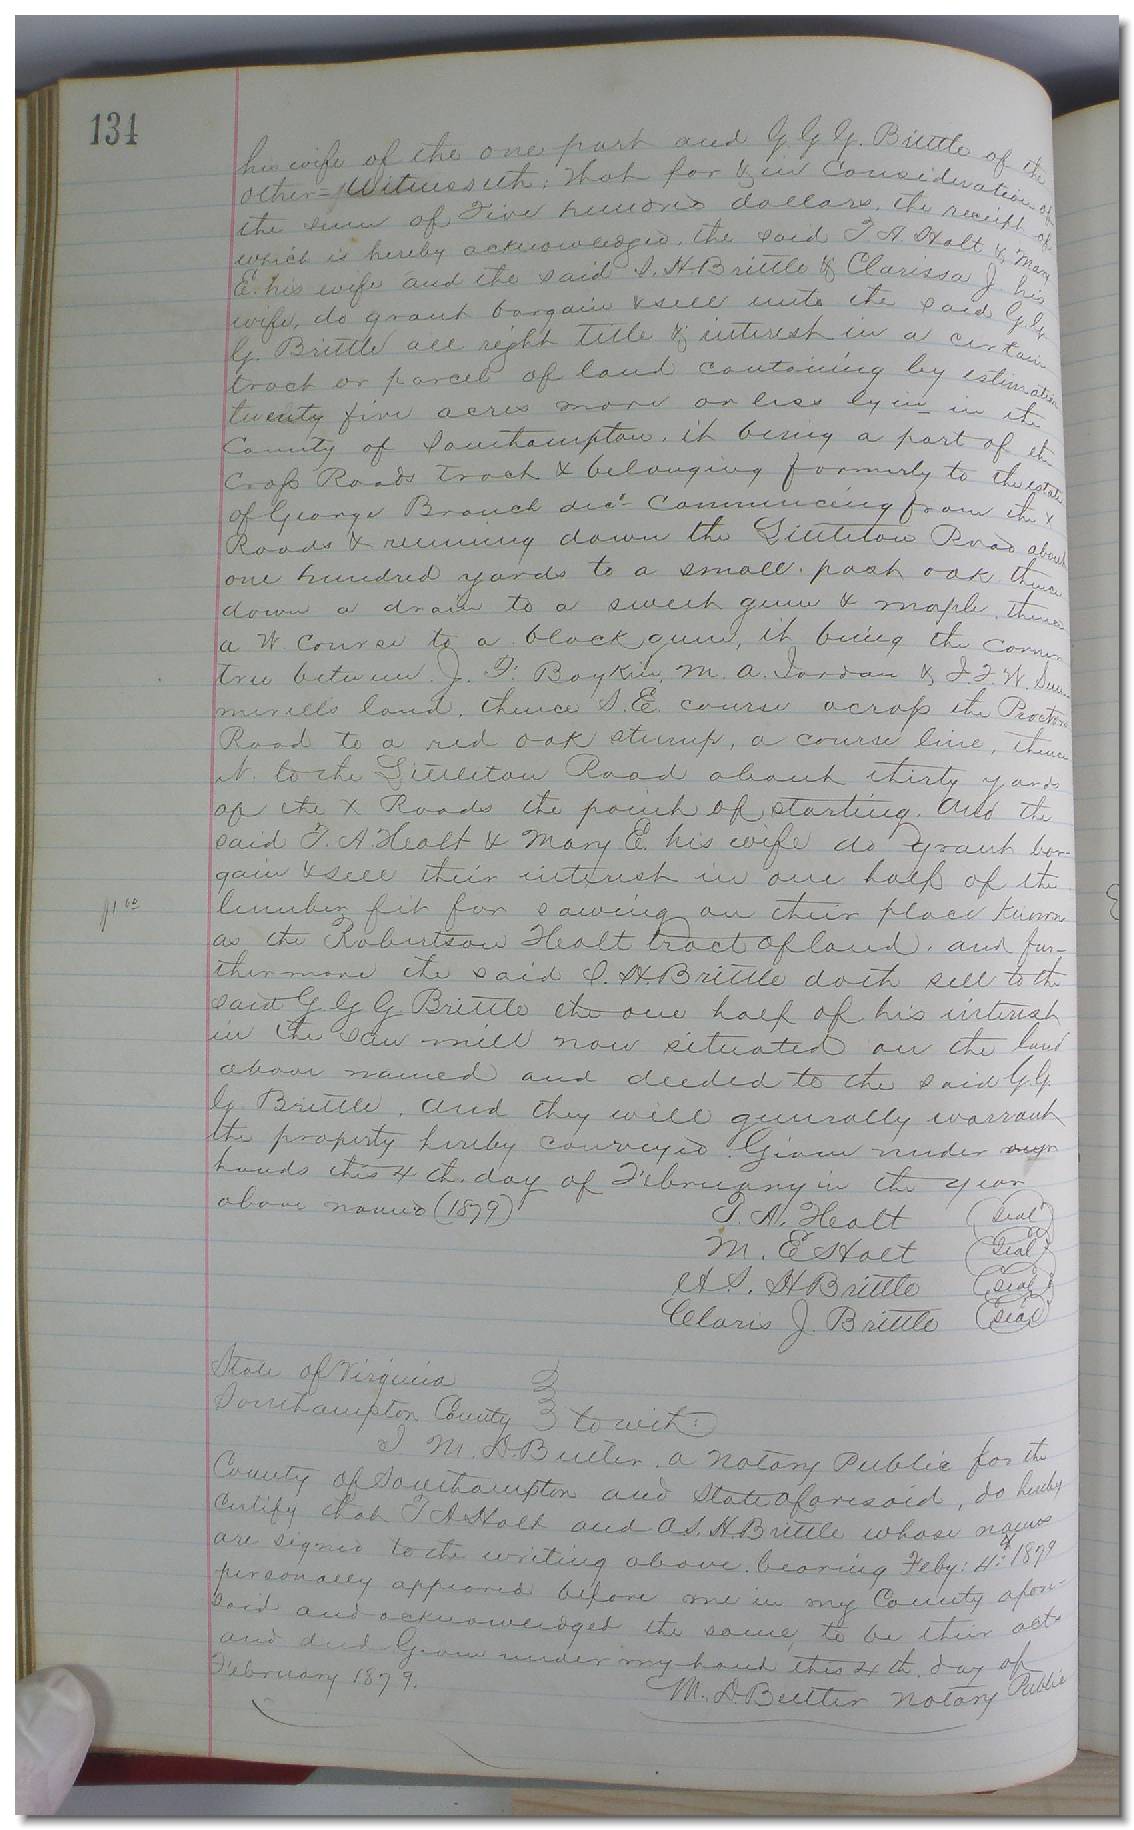 134
his wife of the one part and G. G. G. Brittle of the
other = Witnesseth; That for & in Consideration of
the sum of Five hundred dollars, the receipt of
which is hereby acknowledged, the said T. A. Holt & Mary
E. his wife and the said S. H Brittle & Clarissa J. his
wife, do grant bargain & sell unto the said G. G.
G. Brittle all right title & interest in a certain
tract or parcel of land containing by estimation
twenty five acres more or less lyin in the
County of Southampton, it being a part of the
Cross Roads tract & belonging formerly to the estate
of George Branch decd Commencing from the X
Roads & running down the Littleton Road about
one hundred yards to a small post oak thence
down a drain to a sweet gum & maple, thence
a W. Course to a black gum, it being the corner
tree between J. F. Boykin, M. A. Jordan &
land. thence S. E. course across the Proctors
Road to a red oak stump, a course line, thence
N. to the Littleton Road about thirty yards
of the X Roads the point of starting. And the
said T. A. Healt & Mary E. his wife do grant bar-
gain & sell their interest in one half of the
lumber fit for sawing on their place known
as the Robertson Healt tract of land. and fur-
thermore the said S. H. Brittle doth sell to the
said G. G. G. Brittle the one half of his interest
in the Saw mill now situated on the land
above named and deeded to the said G. G.
G. Brittle. And they will generally warrant
the property hereby conveyed. Given under
hands this 4 th. day of February in the year
above named (1879)
T. A. Healt (Seal)
M. E Holt (Seal)
A S. H Brittle (Seal)
Claris J. Brittle (Seal)
State of Virginia
Southampton County to wit:
I M. D. Butler, a Notary Public for the
County of Southampton and State aforesaid, do hereby
certify that T A Holt and A S. H Brittle whose names
are signed to the writing above bearing Feby: 4th 1879
personally appeared before me in my County afore-
said and acknowledged the same to be their act
and deed Given under my hand this 4 th. day of
February 1879.
M. D. Butler Notary Public